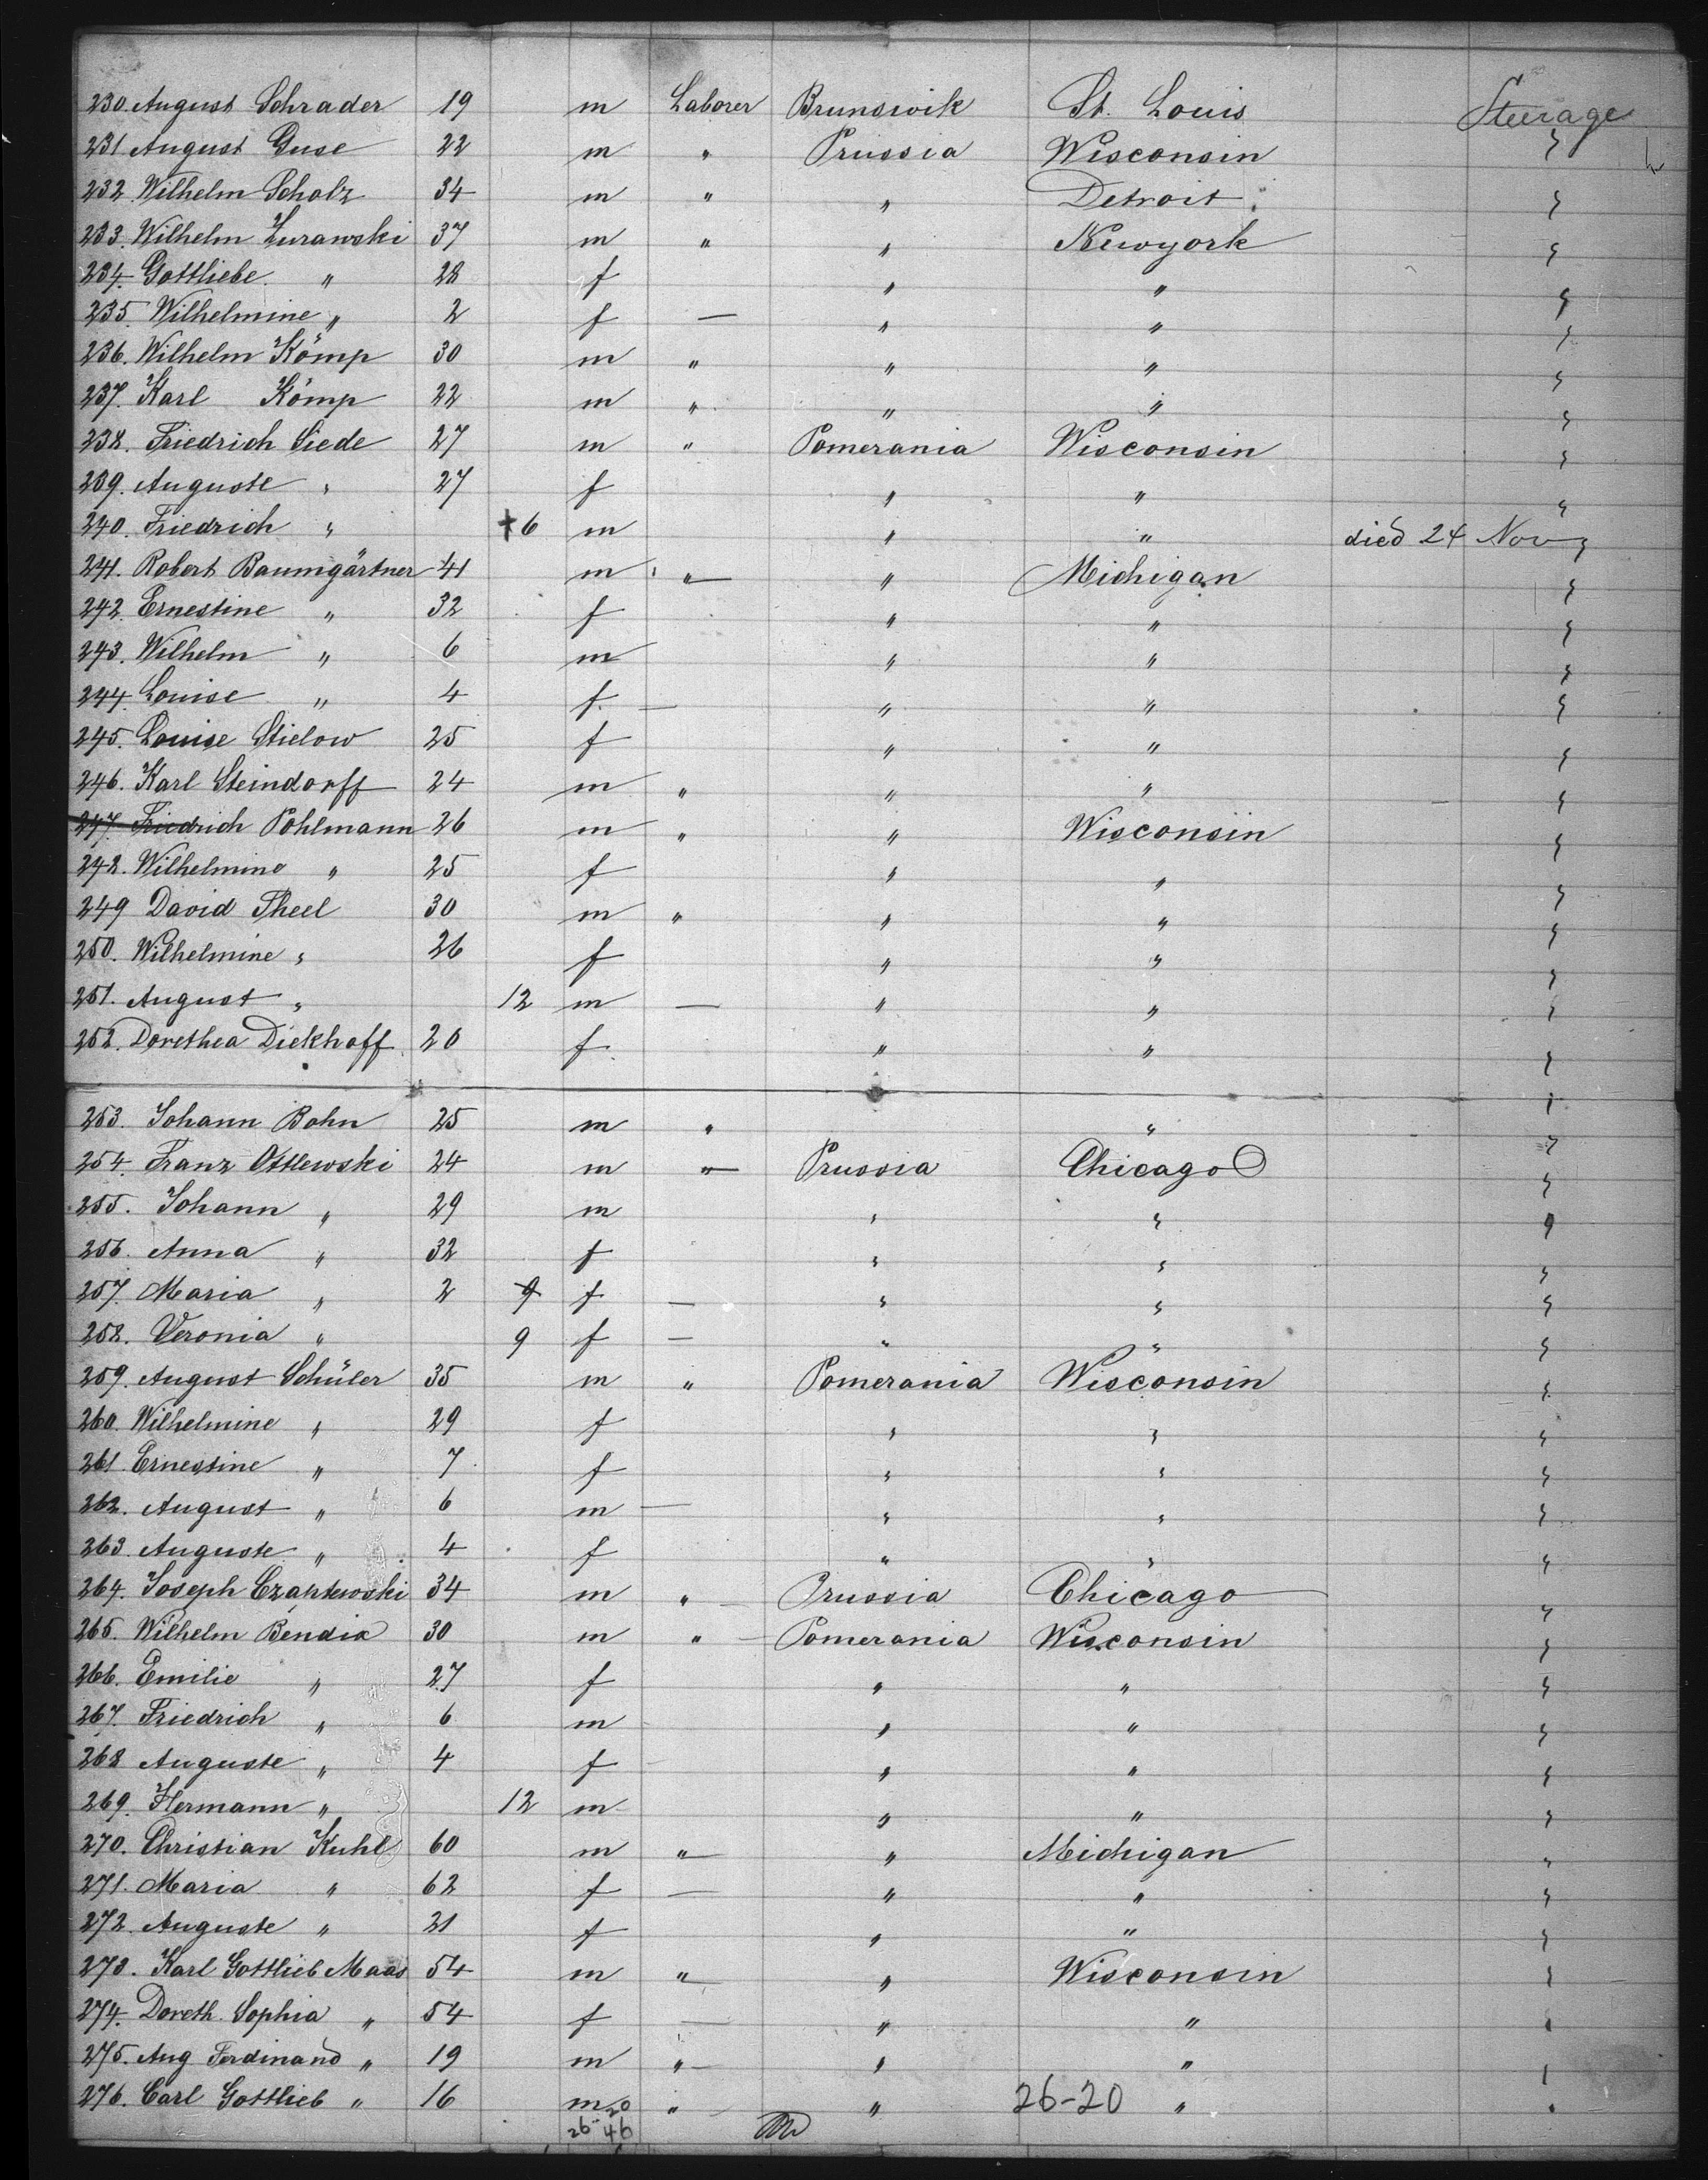 230. August Schrader 19 m Laborer Brunswik St. Louis Steerage
231 August Guse 22 m " Prussia Wisconsin "
232. Wilhelm Scholz 34 m " " Detroit "
233. Wilhelm Zurawski 37 m " " Newyork "
234. Gottliebe " 28 f " " "
235. Wilhelmine " 2 f — " " "
236. Wilhelm Kömp 30 m " " " "
237. Karl Kömp 22 m " " " "
238. Friedrich Siede 27 m " Pomerania Wisconsin "
239. Auguste " 27 f " " "
240. Friedrich " +6 m " " died 24 Nov "
241. Robert Baumgärtner 41 m " " Michigan "
242. Ernestine " 32 f " " "
243. Wilhelm " 6 m " " "
244. Louise " 4 f — " " "
245. Louise Stielow 25 f " " "
246. Karl Steindorff 24 m " " " "
247. Friedrich Pohlmann 26 m " " Wisconsin "
248. Wilhelmine " 25 f " " "
249 David Theel 30 m " " " "
250. Wilhelmine " 26 f " " "
251. August " 12 m — " " "
252. Dorethea Diekhoff 20 f " " "
253. Johann Bohn 25 m " " "
254. Franz Ostlewski 24 m " Prussia Chicago "
255. Johann " 29 m " " "
256. Anna " 32 f " " "
257. Maria " 2 9 f — " " "
258. Veronia " 9 f — " " "
259. August Schüler 35 m " Pomerania Wisconsin "
260. Wilhelmine " 29 f " " "
261 Ernestine " 7 f " " "
262. August " 6 m — " " "
263 Auguste " 4 f " " "
264. Joseph 34 m " Prussia Chicago "
265. Wilhelm Bendix 30 m " Pomerania Wisconsin "
266. Emilie " 27 f " " "
267. Friedrich " 6 m " " "
268 Auguste " 4 f " " "
269. Hermann " 12 m " " "
270. Christian Kuhl 60 m " " Michigan "
271. Maria " 62 f — " " "
272. Auguste " 21 f " " "
273. Karl Gottlieb Maas 54 m " " Wisconsin "
274. Doreth. Sophia " 54 f — " " "
275. Aug Ferdinand " 19 m " " " "
276. Carl Gottlieb " 16 m 20 " " 26-20 " "
26- 46